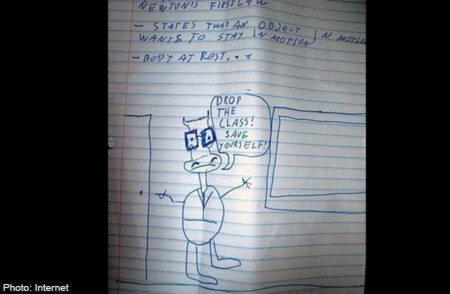 NEWTONIS FIRST LAW
- STATES THAT AN OBJECT
WANTS TO STAY IN MOTION IN MOTION
- BODY AT REST...
DROP
THE
CLASS!
SAVE
YOURSELF!
Photo: Internet